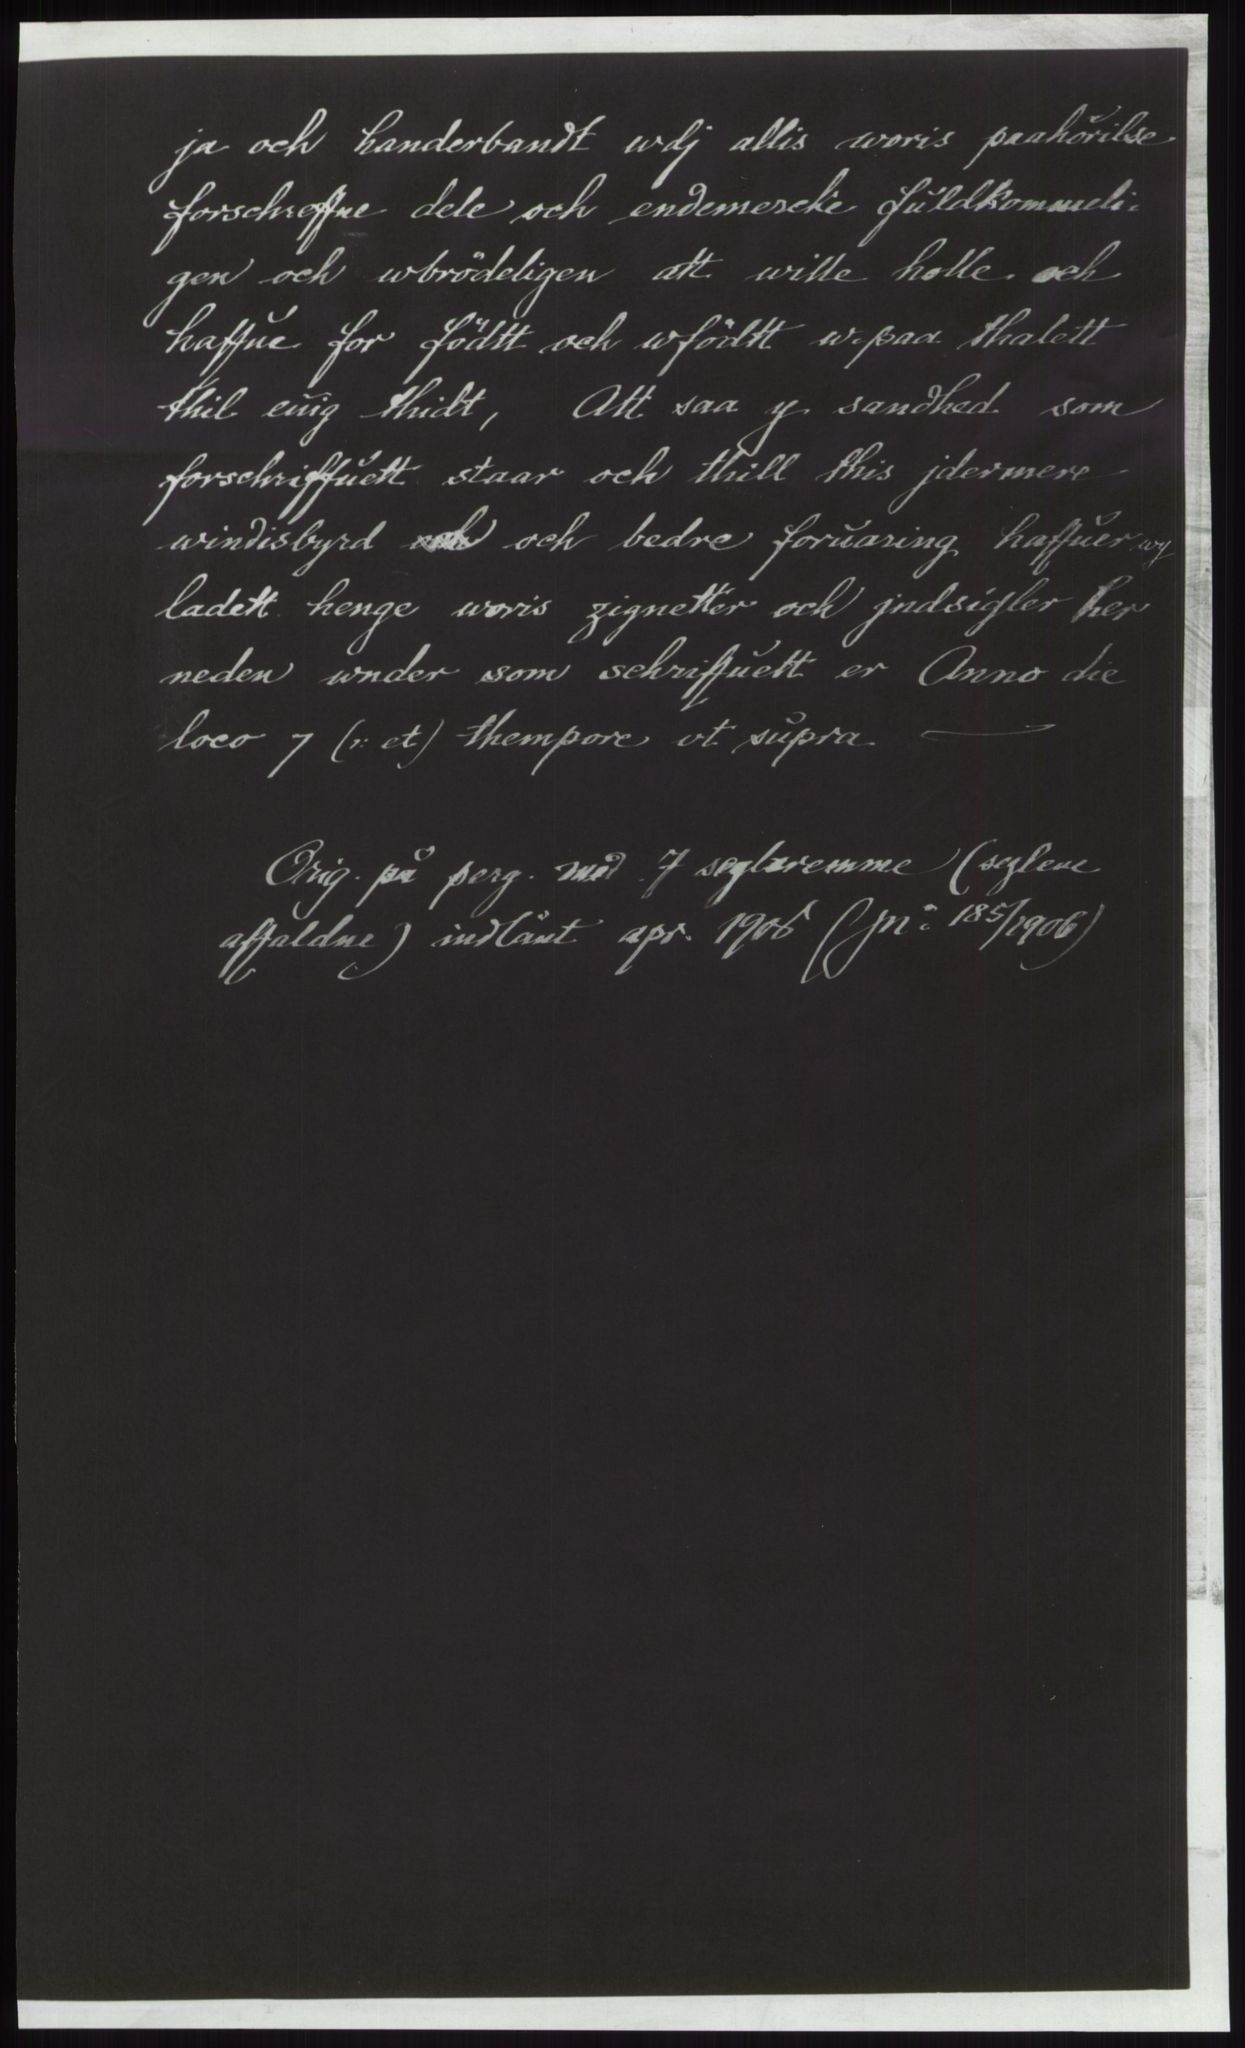 ja och handerbandt wdj allis woris paahörilse
forschreffne dele och endemercke fuldkommeli-
gen och wbrödeligen att wille holle och
haffue for födtt och wfödtt w-paa thalett
thil euig thidt, Att saa y sandhed som
forschriffuett staar och thill this jdermere
windisbyrd och bedre foruaring haffuer wy
ladett henge woris zignetter och jndsigler her
neden wnder som schriffuett er Anno die
loco 7 (ɔ: et) thempore vt supra
Orig. på perg. med 7 seglremme (seglene
affaldne) indlånt apr. 1906 (Jn: 185/1906)